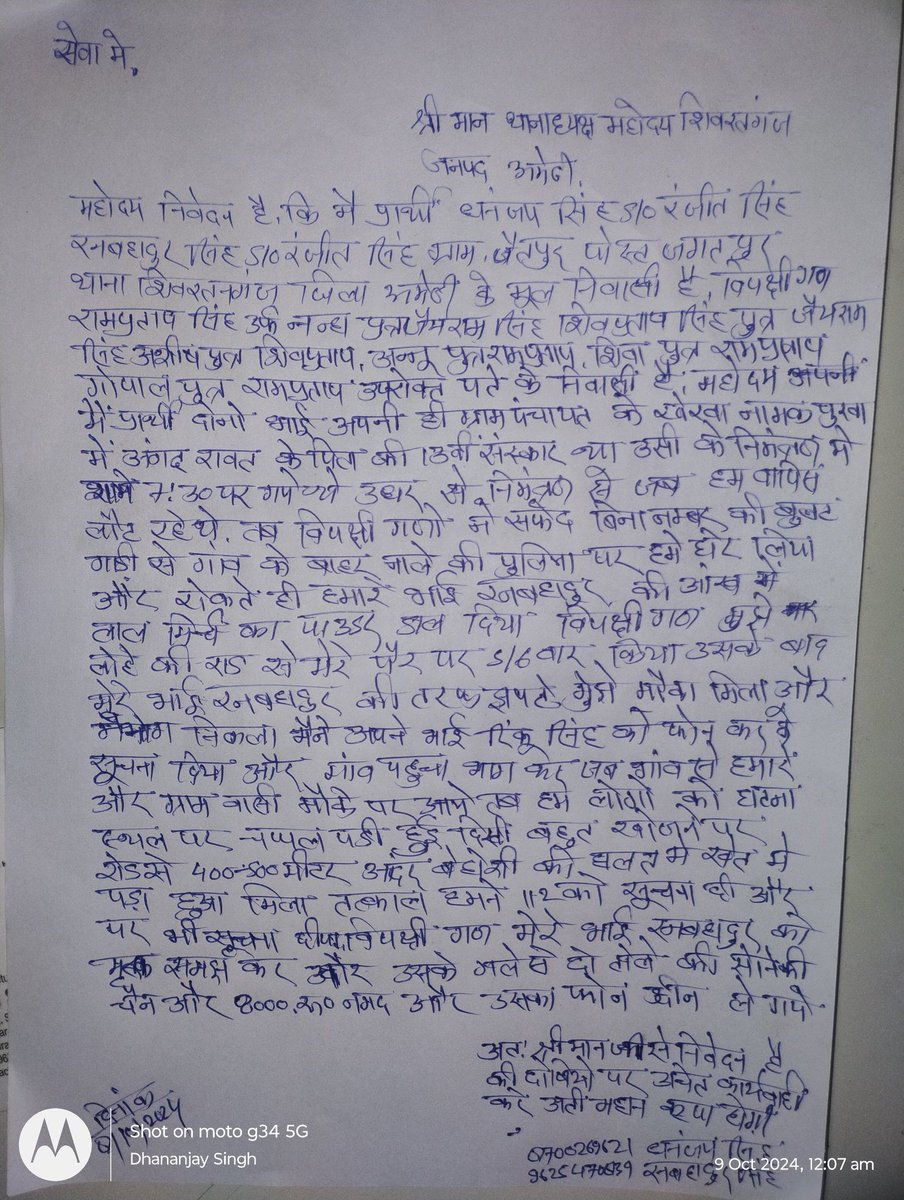 सेवा मे,
श्री मान थानाध्यक्ष महोदय शिवरतनगंज
जनपद अमेठी,
महोदय निवेदय है, कि मै प्रार्थी धनंजय सिंह S/O रंजीत सिंह
रनबहादुर सिंह S/O रंजीत सिंह ग्राम जैतपुर पोस्त जगतपुर
थाना शिवरतनगंज जिला अमेठी के मूल निवासी है, विपक्षी गण
रामप्रताप सिंह उर्फ नन्हा पुत्र जैयराम सिंह शिवप्रताप सिंह पुत्र जैयराम
सिंह पुत्र शिवप्रताप, अन्नू पुत्र रामप्रताप, शिवा पुत्र रामप्रताप
गोपाल पुत्र रामप्रताप उपरोक्त पते के निवासी है, महोदय अपनी
मैं प्रार्थी दोनो भाई अपनी ही ग्राम पंचायत के नामक पुरवा
में अंगद रावत के पिता की 13वी संस्कार था उसी के निमंत्रण मे
शाम 7:30 पर गये थे उधर से निमंत्रण से जब हम वापिस
लौट रहे थे, तब विपक्षी गणो ने सफेद बिना नम्बर की
गाडी से गांव के बाहर नाले की पुलिया पर हमे घेर लिया
और रोकते ही हमारे भाई रनबहादुर की आंख मे
लाल मिर्च का पाउडर डाल दिया विपक्षी गण मुझे
लोहे की राड से मेरे पैर पर 5/6 वार किया उसके बाद
मेरे भाई रनबहादुर की तरफ झपटे, मुझे मौका मिला और
निकला मैने अपने भाई रिंकू सिंह को फोन कर के
सूचना दिया और गांव पहुचा भाग कर जब गांव से हमारे
और ग्राम वासी मौके पर आये तब हमे लोगो को घटना
स्थल पर चप्पल पडी हुई दिखी बहुत खोजने पर
रोड से 400-500 मीटर अंदर बेहोशी की हालत मे खेत मे
पड़ा हुआ मिला तत्काल हमने 112 को सूचना दी और
पर भी सूचना दीया, विपक्षी गण मेरे भाई रनबहादुर को
समझ कर और उसके गले से दो तोले की सोने की
चैन और 8000 रू० नगद और उसका फोन छीन ले गये
अतः श्री मान जी से निवेदन है
की दोषियो पर उचित कार्यवाही
करे अती महान कृपा होगी
दिनांक
धनंजय सिंह
रनबहादुर सिंह
Shot on moto g34 5G
Dhananjay Singh
9 Oct 2024, 12:07 am